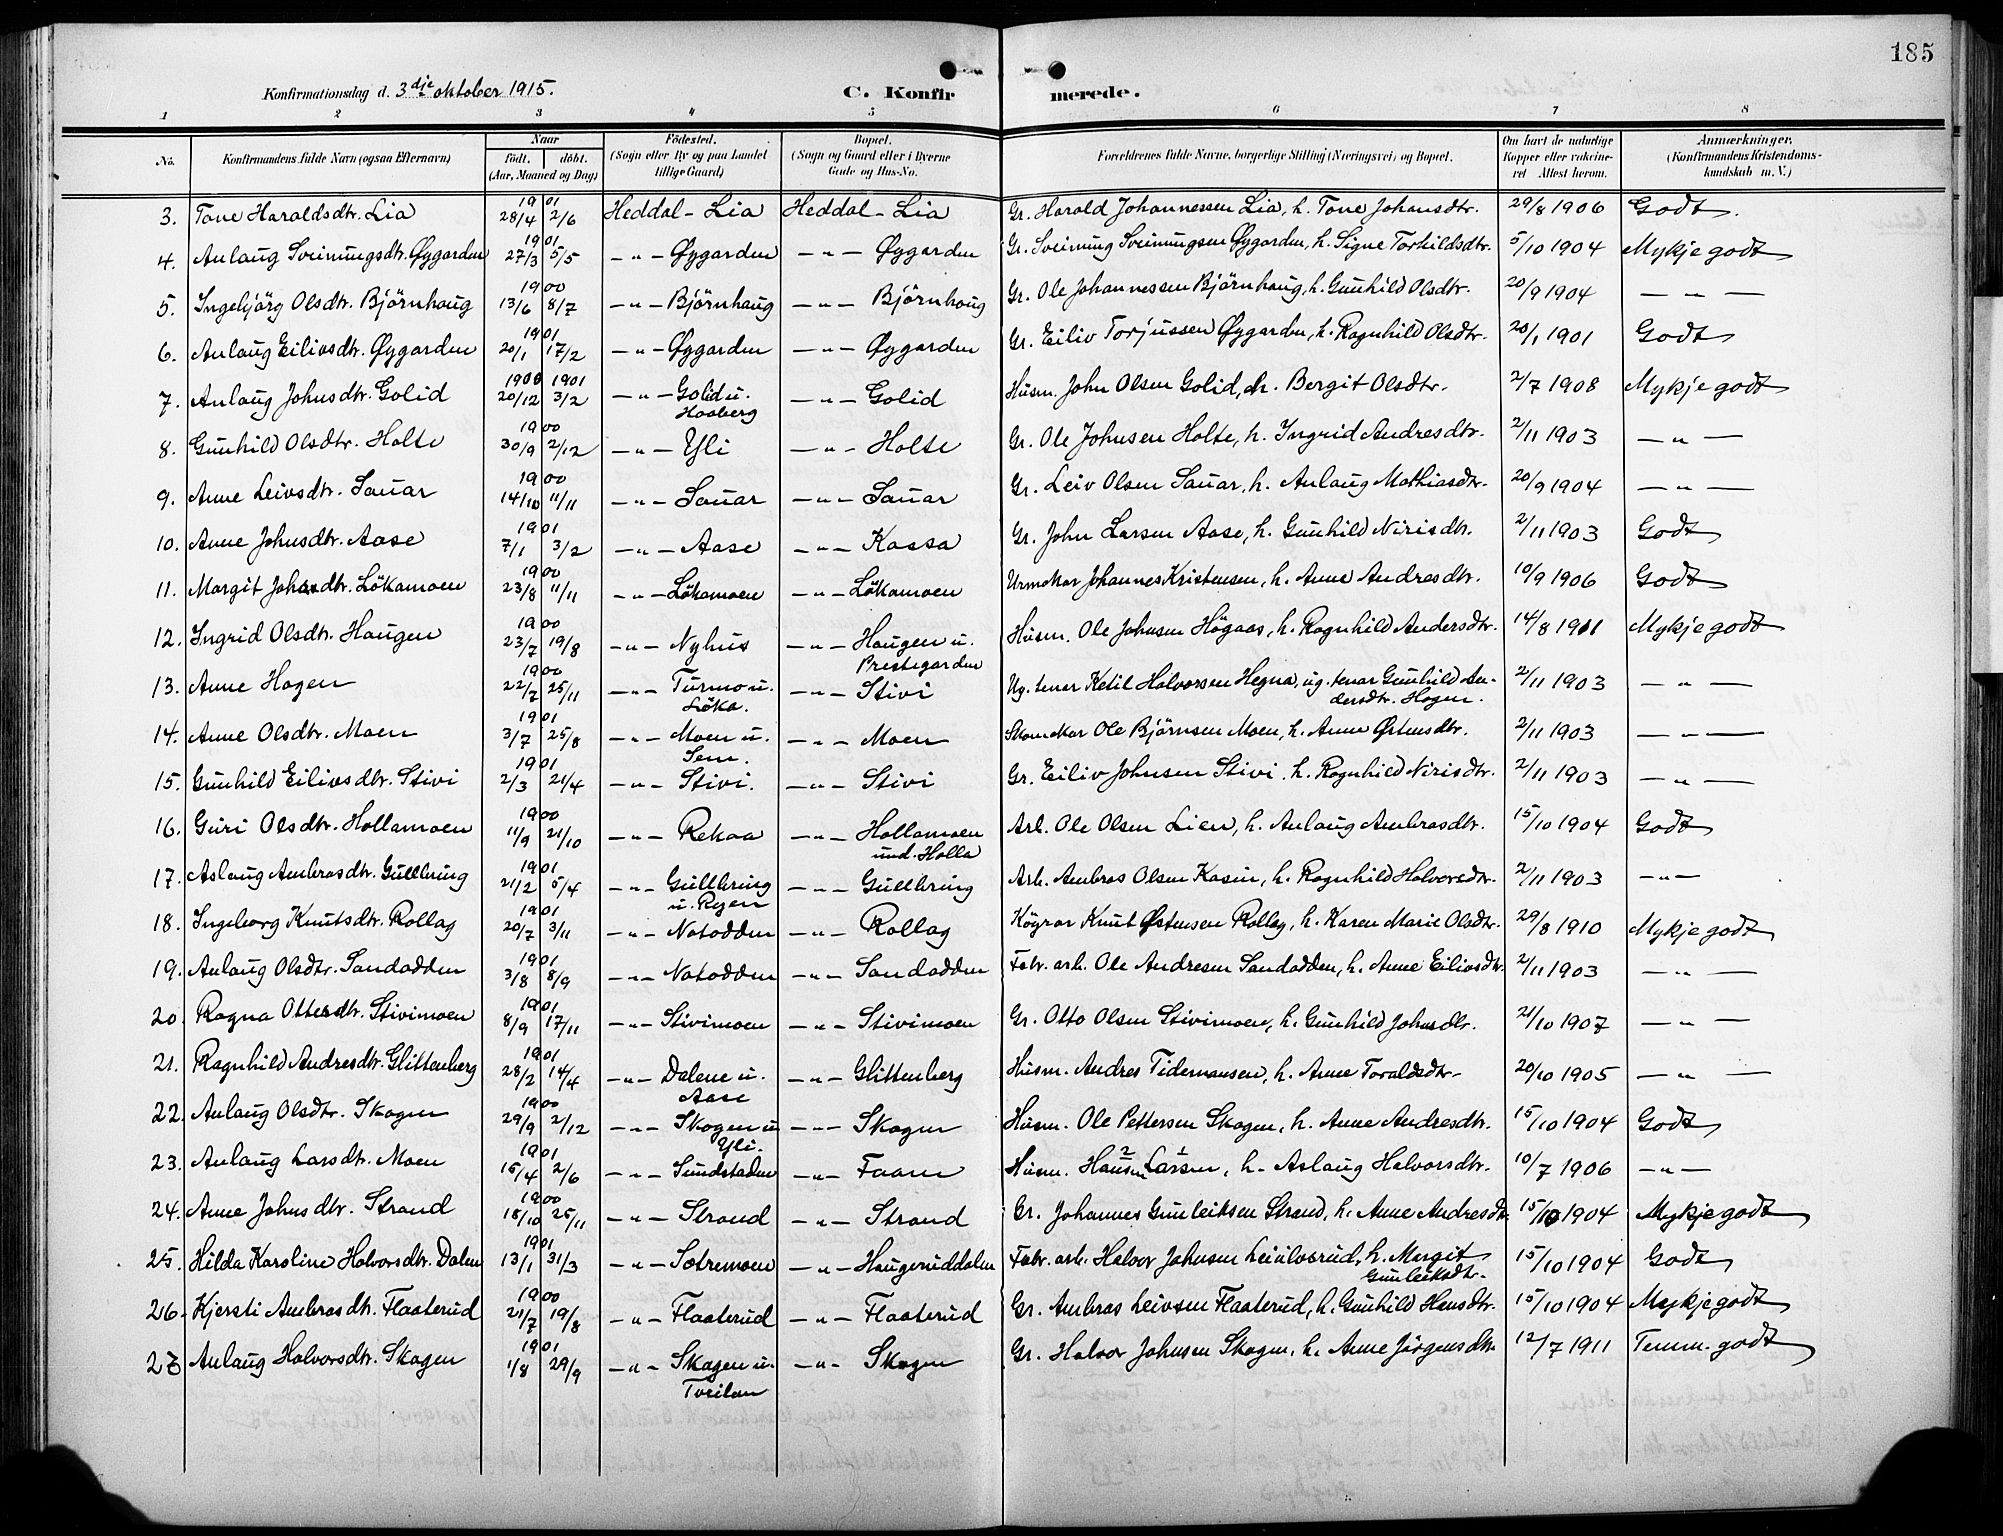 185
Konfirmationsdag d. 3dje oktober 1915. C. Konfirmerede.
1 2 3 4 5 6 7 8
No. Konfirmandens fulde Navn (ogsaa Efternavn) Naar födt. döbt. (Aar, Maaned og Dag) Födested. (Sogn eller By og paa Landet tillige Gaard) Bopæl. (Sogn og Gaard eller i Byerne Gade og Hus-No. Forældrenes fulde Navne, borgerlige Stilling (Næringsvei) og Bopæl. Om havt de naturlige Kopper eller vakcineret. Attest herom. Anmærkninger. (Konfirmandens Kristendomskundskab m. V.)
3. Tone Haraldsdtr. Lia 1901 28/4 2/6 Heddal - Lia Heddal - Lia Gr. Harald Johannessen Lia, h. Tone Johansdtr. 29/8 1906 Godt.
4. Anlaug Sveinungsdtr. Øygarden 1901 27/3 5/5 -"- Øygarden -"- Øygarden Gr. Sveinung Sveinungsen Øygarden, h. Signe Torhildsdtr. 5/10 1904 Mykje godt
5. Ingebjörg Olsdtr. Björnhaug 1900 13/6 8/7 -"- Björnhaug -"- Björnhaug Gr. Ole Johannessen Björnhaug, h. Gunhild Olsdtr. 20/9 1904 -"-
6. Anlaug Eilivsdtr. Øygarden 1901 20/1 17/2 -"- Øygarden -"- Øygarden Gr. Eiliv Torjussen Øygarden, h. Ragnhild Olsdtr. 20/1 1901 Godt
7. Anlaug Johnsdtr. Golid 1900 1901 20/12 3/2 -"- Golid u. Haaberg -"- Golid Husm. John Olsen Golid, h. Bergit Olsdtr. 2/7 1908 Mykje godt
8. Gunhild Olsdtr. Holte 1900 30/9 2/12 -"- Yli -"- Holte Gr. Ole Johnsen Holte, h. Ingrid Andresdtr. 2/11 1903 -"-
9. Anne Leivsdtr. Sauar 1900 14/10 11/11 -"- Sauar -"- Sauar Gr. Leiv Olsen Sauar, h. Anlaug Mathiasdtr. 20/9 1904 -"-
10. Anne Johnsdtr. Aase 1901 7/1 3/2 -"- Aase -"- Kassa Gr. John Larsen Aase, h. Gunhild Nirisdtr. 2/11 1903 Godt
11. Margit Johsdtr. Lökamoen 1900 23/8 11/11 -"- Lökamoen -"- Lökamoen Urmakar Johannes Kristensen, h. Anne Andresdtr. 10/9 1906 Godt
12. Ingrid Olsdtr. Haugen 1900 23/7 19/8 -"- Nyhus -"- Haugen u. Prestegarden Husm. Ole Johnsen Högaas, h. Ragnhild Andersdtr. 14/8 1911 Mykje godt
13. Anne Hagen 1900 22/7 25/11 -"- Turmo u. Löka. -"- Stivi Ug. tenar Ketil Halvorsen Hegna, ug. tenar Gunhild Andersdtr. Hagen. 2/11 1903 -"-
14. Anne Olsdtr. Moen 1901 3/7 25/8 -"- Moen u. Sem. -"- Moen Skomakar Ole Björnsen Moen, h. Anne Østensdtr. 2/11 1903 -"-
15. Gunhild Eilivsdtr. Stivi 1901 2/3 21/4 -"- Stivi. -"- Stivi Gr. Eiliv Johnsen Stivi, h. Ragnhild Nirisdtr. 2/11 1903 -"-
16. Guri Olsdtr. Hollamoen 1900 11/9 21/10 -"- Rekaa -"- Hollamoen und. Holla Arb. Ole Olsen Lien, h. Anlaug Ambrosdtr. 15/10 1904 Godt
17. Aslaug Ambrosdtr. Gullbring 1901 21/2 5/4 -"- Gullbring u. Ryen -"- Gullbring Arb. Ambros Olsen Kasin, h. Ragnhild Halvorsdtr. 2/11 1903 -"-
18. Ingeborg Knutsdtr. Rollag 1901 20/7 3/11 -"- Notodden -"- Rollag Köyrar Knut Østensen Rollag, h. Karen Marie Olsdtr. 29/8 1910 Mykje godt
19. Anlaug Olsdtr. Sandodden 1901 3/8 8/9 -"- Notodden -"- Sandodden Fabr. arb. Ole Andresen Sandodden, h. Anne Eilivsdtr. 2/11 1903 -"-
20. Ragna Ottesdtr. Stivimoen 1901 8/9 17/11 -"- Stivimoen -"- Stivimoen Gr. Otto Olsen Stivimoen, h. Gunhild Johnsdtr. 21/10 1907 -"-
21. Ragnhild Andresdtr. Glittenberg 1901 28/2 14/4 -"- Dalene u. Aase -"- Glittenberg Husm. Andres Tidemansen, h. Anne Toraldsdtr. 20/10 1905 -"-
22. Anlaug Olsdtr. Skogen 1900 29/9 2/12 -"- Skogen u Yli. -"- Skogen Husm. Ole Pettersen Skogen, h. Anne Andresdtr. 15/10 1904 Godt
23. Anlaug Larsdtr. Moen 1901 15/4 2/6 -"- Sundstaden -"- Faann Husm. Hansen 2 Larsen 1, h. Aslaug Halvorsdtr. 10/7 1906 -"-
24. Anne Johnsdtr. Strand 1900 18/10 25/11 -"- Strand -"- Strand Gr. Johannes Gunleiksen Strand, h. Anne Andresdtr. 15/10 1904 Mykje godt
25. Hilda Karoline Halvorsdtr. Dalen 1901 13/1 31/3 -"- Sotremoen -"- Haugeruddalen Fabr. arb. Halvor Johnsen Leiulvsrud, h. Margit Gunleiksdtr. 15/10 1904 Godt
26. Kjersti Ambrosdtr. Flaaterud 1900 21/7 19/8 -"- Flaaterud -"- Flaaterud Gr. Ambros Leivsen Flaaterud, h. Gunhild Hansdtr. 15/10 1904 Mykje godt
27 Anlaug Halvorsdtr. Skogen 1901 1/8 29/9 -"- Skogen u. Tveitan -"- Skogen Gr. Halvor Johnsen Skogen, h. Anne Jörgensdtr. 12/7 1911 Temm. godt